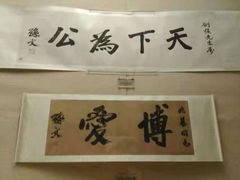 天下為公
孫文
博愛
孫文